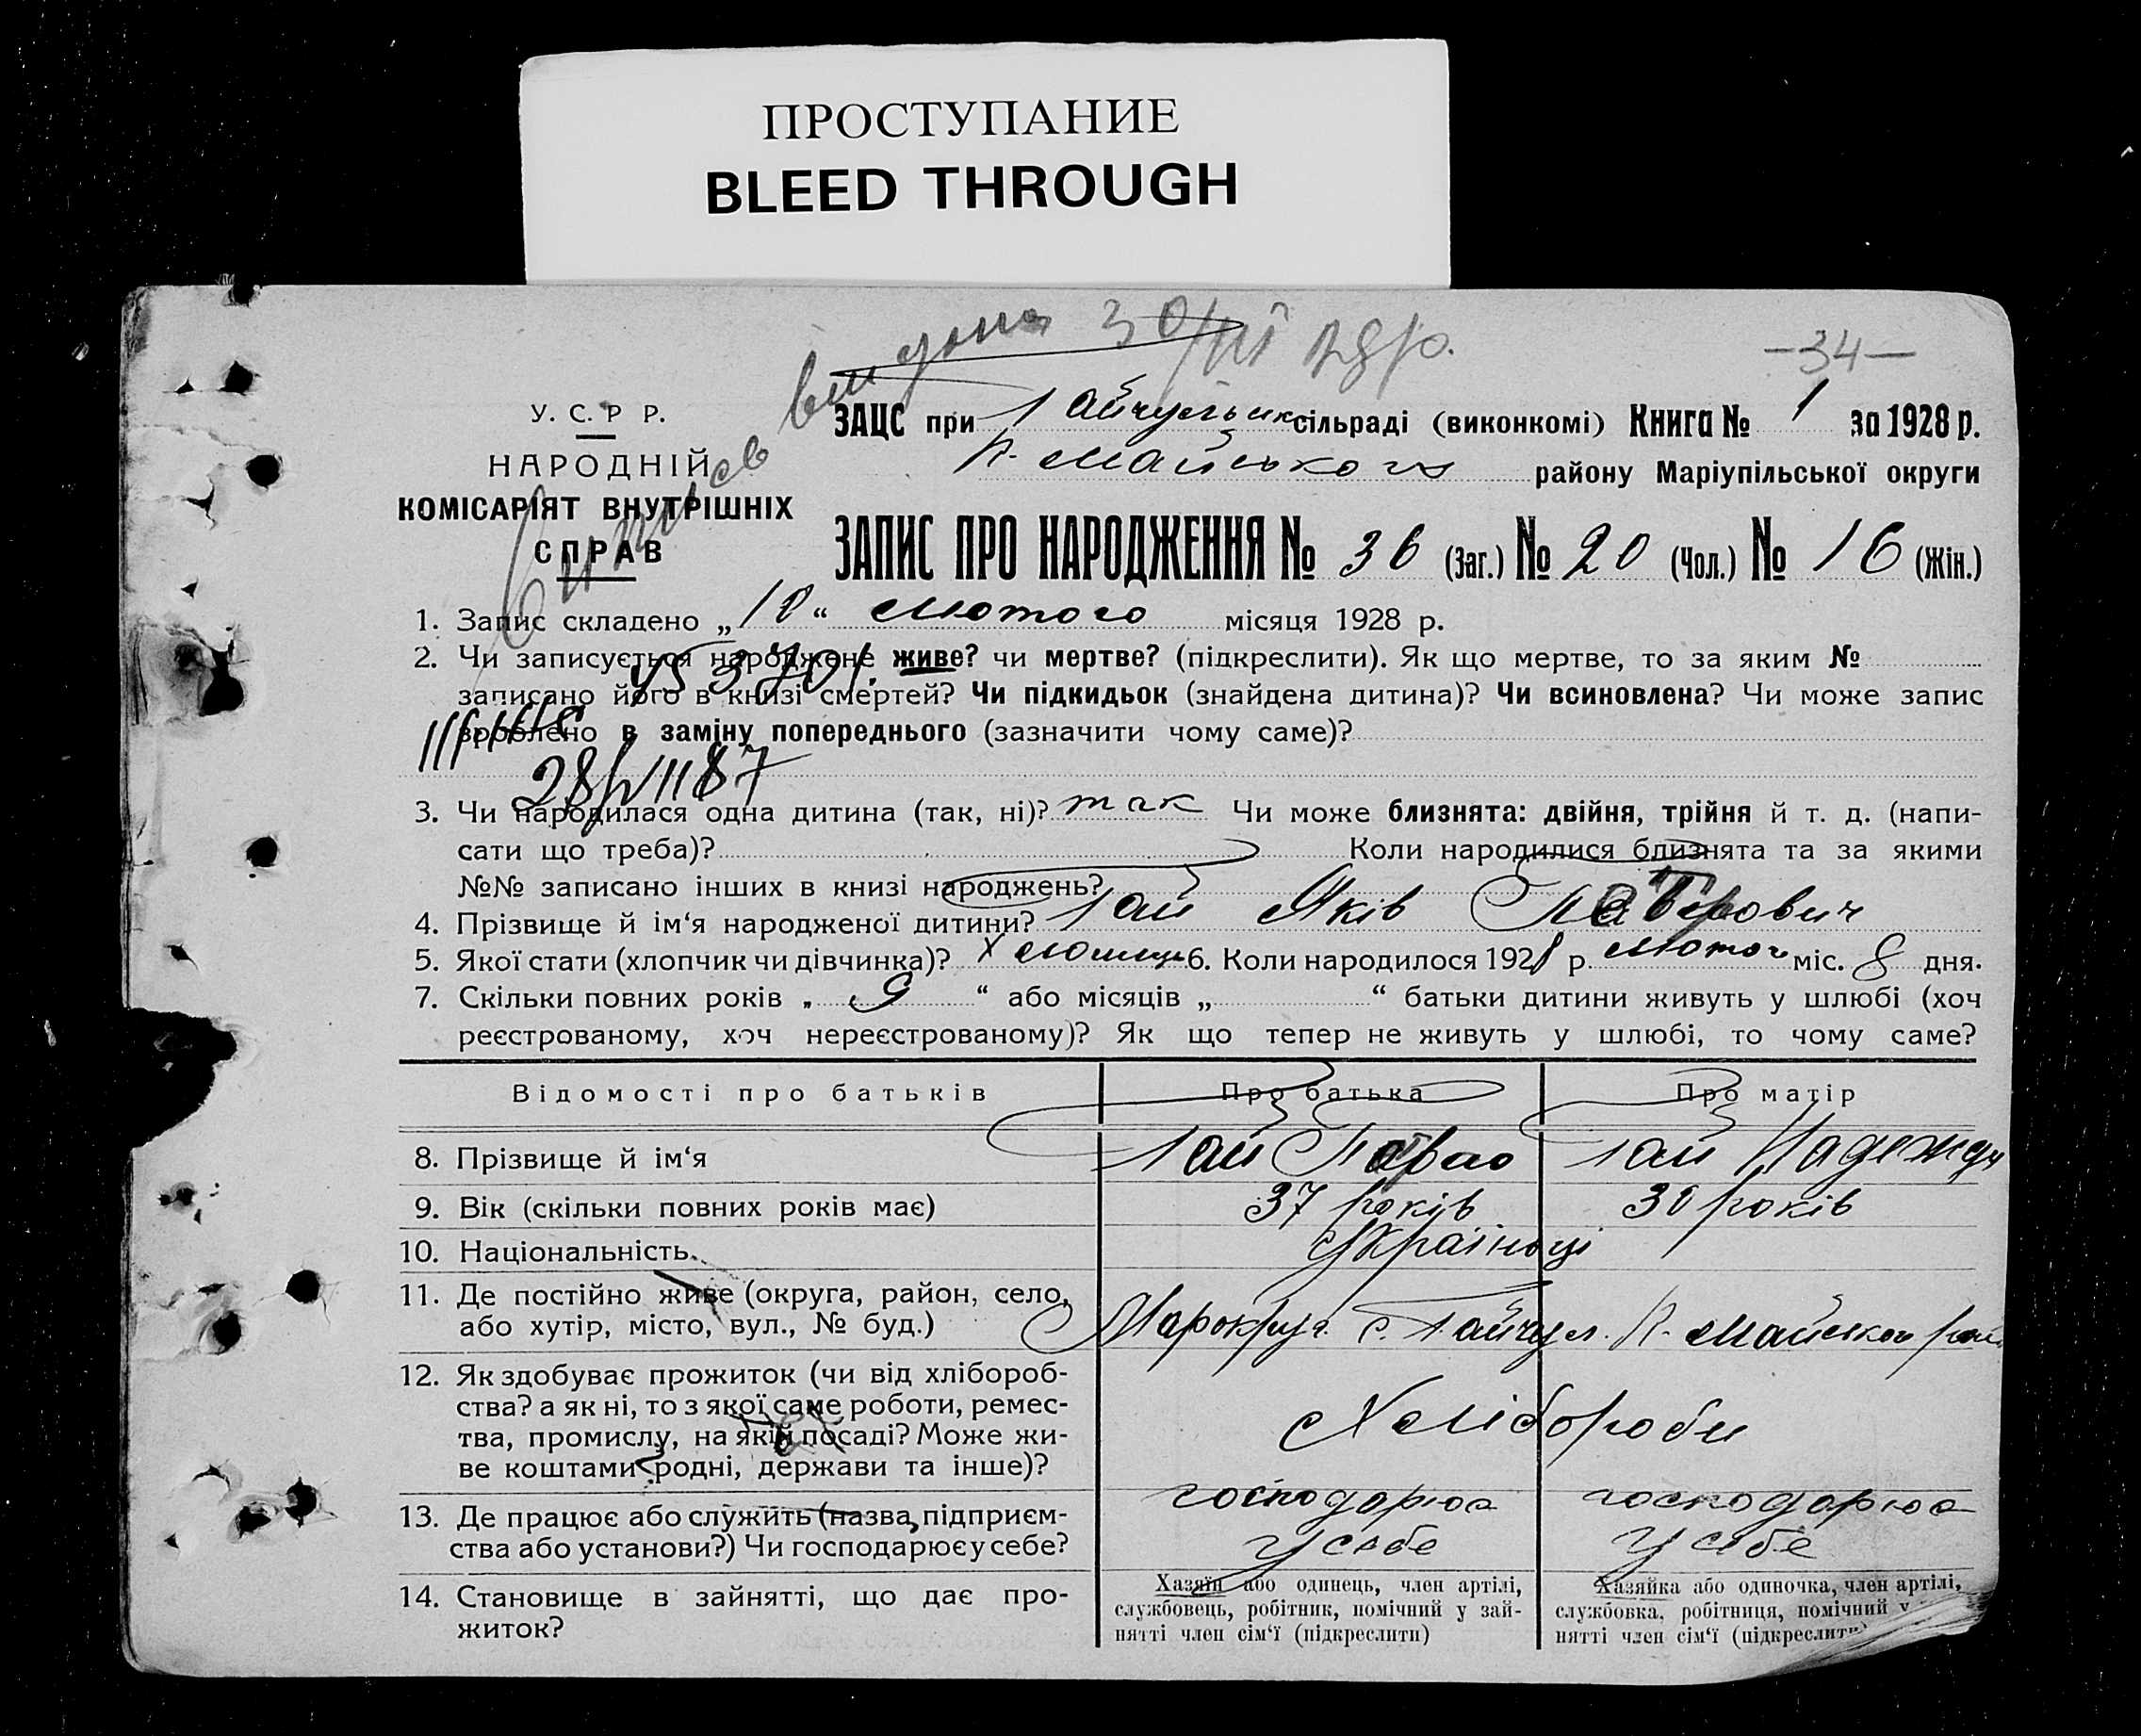 ПРОСТУПАНИЕ
BLEED THROUGH
видана 30/III 28 р.
—34—
У. С. Р Р.
НАРОДНІЙ
КОМІСАРІЯТ ВНУТРІШНІХ
СПРАВ
ЗАЦС при Гайчульск сільраді (виконкомі) Книга № 1 за 1928 р.
К. Майського району Маріупільської округи
ЗАПИС ПРО НАРОДЖЕННЯ № 36 (Заг.) № 20 (Чол.) № 16 (Жін.)
1. Запис складено „10“ Лютого місяця 1928 р.
2. Чи записується народжене живе? чи мертве? (підкреслити). Як що мертве, то за яким №
записано його в книзі смертей? Чи підкидьок (знайдена дитина)? Чи всиновлена? Чи може запис
зроблено в заміну попереднього (зазначити чому саме)?
3. Чи народилася одна дитина (так, ні)? так Чи може близнята: двійня, трійня й т. д. (напи-
сати що треба)? Коли народилися близнята та за якими
№№ записано інших в книзі народжень?
4. Прізвище й ім‘я народженої дитини? Гай Яків
5. Якої стати (хлопчик чи дівчинка)? Хлопчик 6. Коли народилося 1928 р. Лютого міс. 8 дня.
7. Скільки повних років „ 9 “ або місяців „ “ батьки дитини живуть у шлюбі (хоч
реєстрованому, хоч нереєстрованому)? Як що тепер не живуть у шлюбі, то чому саме?
Відомості про батьків Про батька Про матір
8. Прізвище й ім‘я Гай Павло Гай Надежда
9. Вік (скільки повних років має) 37 років 30 років
10. Національність. Українці
11. Де постійно живе (округа, район, село,
або хутір, місто, вул., № буд.) Марокруг. с. Гайчул. К. Майськои рай
12. Як здобуває прожиток (чи від хлібороб-
ства? а як ні, то з якої саме роботи, ремес-
тва, промислу, на якій посаді? Може жи-
ве коштами родні, держави та інше)? Хлібороби
13. Де працює або служить (назва підприєм-
ства або установи?) Чи господарює у себе? господарює у себе господарює у себе
14. Становище в зайнятті, що дає про-
житок?
Хазяїн або одинець, член артілі,
службовець, робітник, помічний у зай-
нятті член сім‘ї (підкреслити)
Хазяйка або одиночка, член артілі,
службовка, робітниця, помічний у
нятті член сім‘ї (підкреслити)